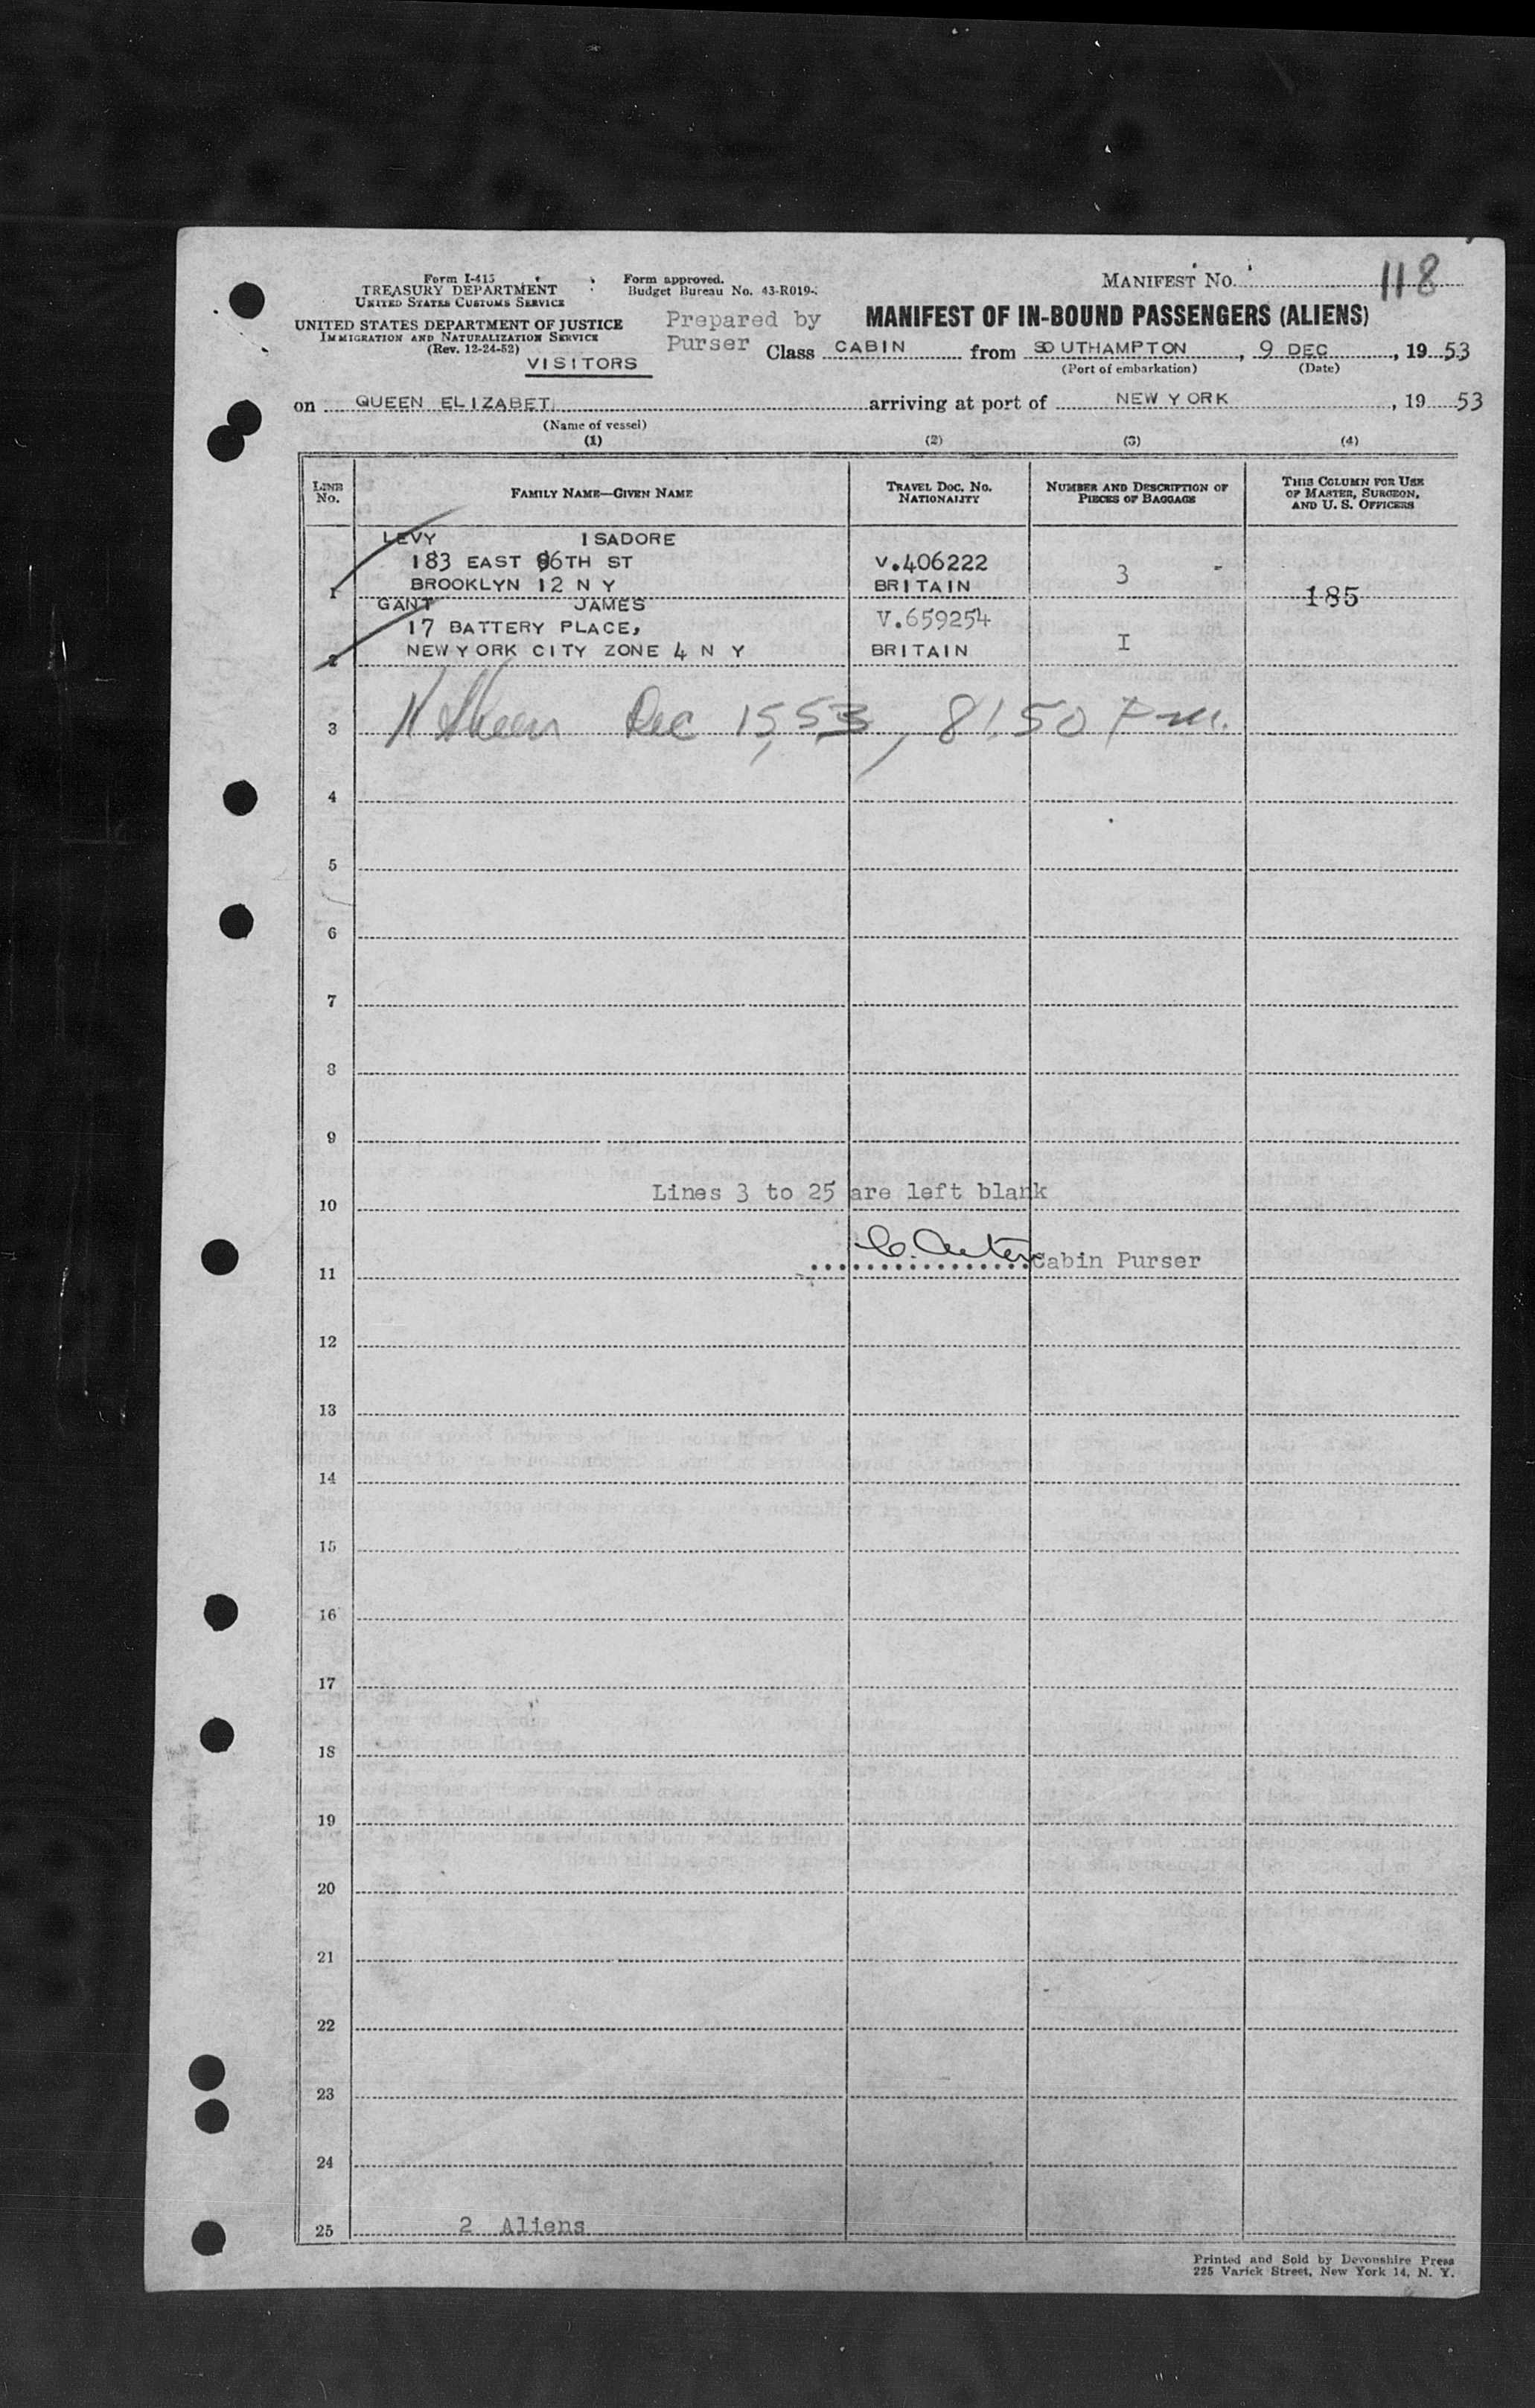 Form I-415
TREASURY DEPARTMENT
UNITED STATES CUSTOMS SERVICE
UNITED STATES DEPARTMENT OF JUSTICE
IMMIGRATION AND NATURALIZATION SERVICE
(Rev. 12-24-52)
VISITORS
Form approved.
Budget Bureau No. 43-R019-
Prepared by
Purser
MANIFEST NO. 118
MANIFEST OF IN-BOUND PASSENGERS (ALIENS)
Class CABIN from SOUTHAMPTON, 9 DEC, 1953
(Port of embarkation) (Date)
on QUEEN ELIZABET arriving at port of NEW YORK, 19 53
(Name of vessel)
(1) (2) (3) (4)
LINE No. FAMILY NAME—GIVEN NAME TRAVEL DOC. NO. NATIONALITY NUMBER AND DESCRIPTION OF PIECES OF BAGGAGE THIS COLUMN FOR USE OF MASTER, SURGEON, AND U. S. OFFICERS
LEVY ISADORE
183 EAST 96TH ST V.406222
1 BROOKLYN 12 N Y BRITAIN 3 185
GANT JAMES
17 BATTERY PLACE, V.659254
2 NEW YORK CITY ZONE 4 N Y BRITAIN I
3 Dec 15, 53, 8:50 Pm.
4
5
6
7
8
9
Lines 3 to 25 are left blank
10
11 Cabin Purser
12
13
14
15
16
17
18
19
20
21
22
23
24
25 2 Aliens
Printed and Sold by Devonshire Press
225 Varick Street, New York 14, N. Y.